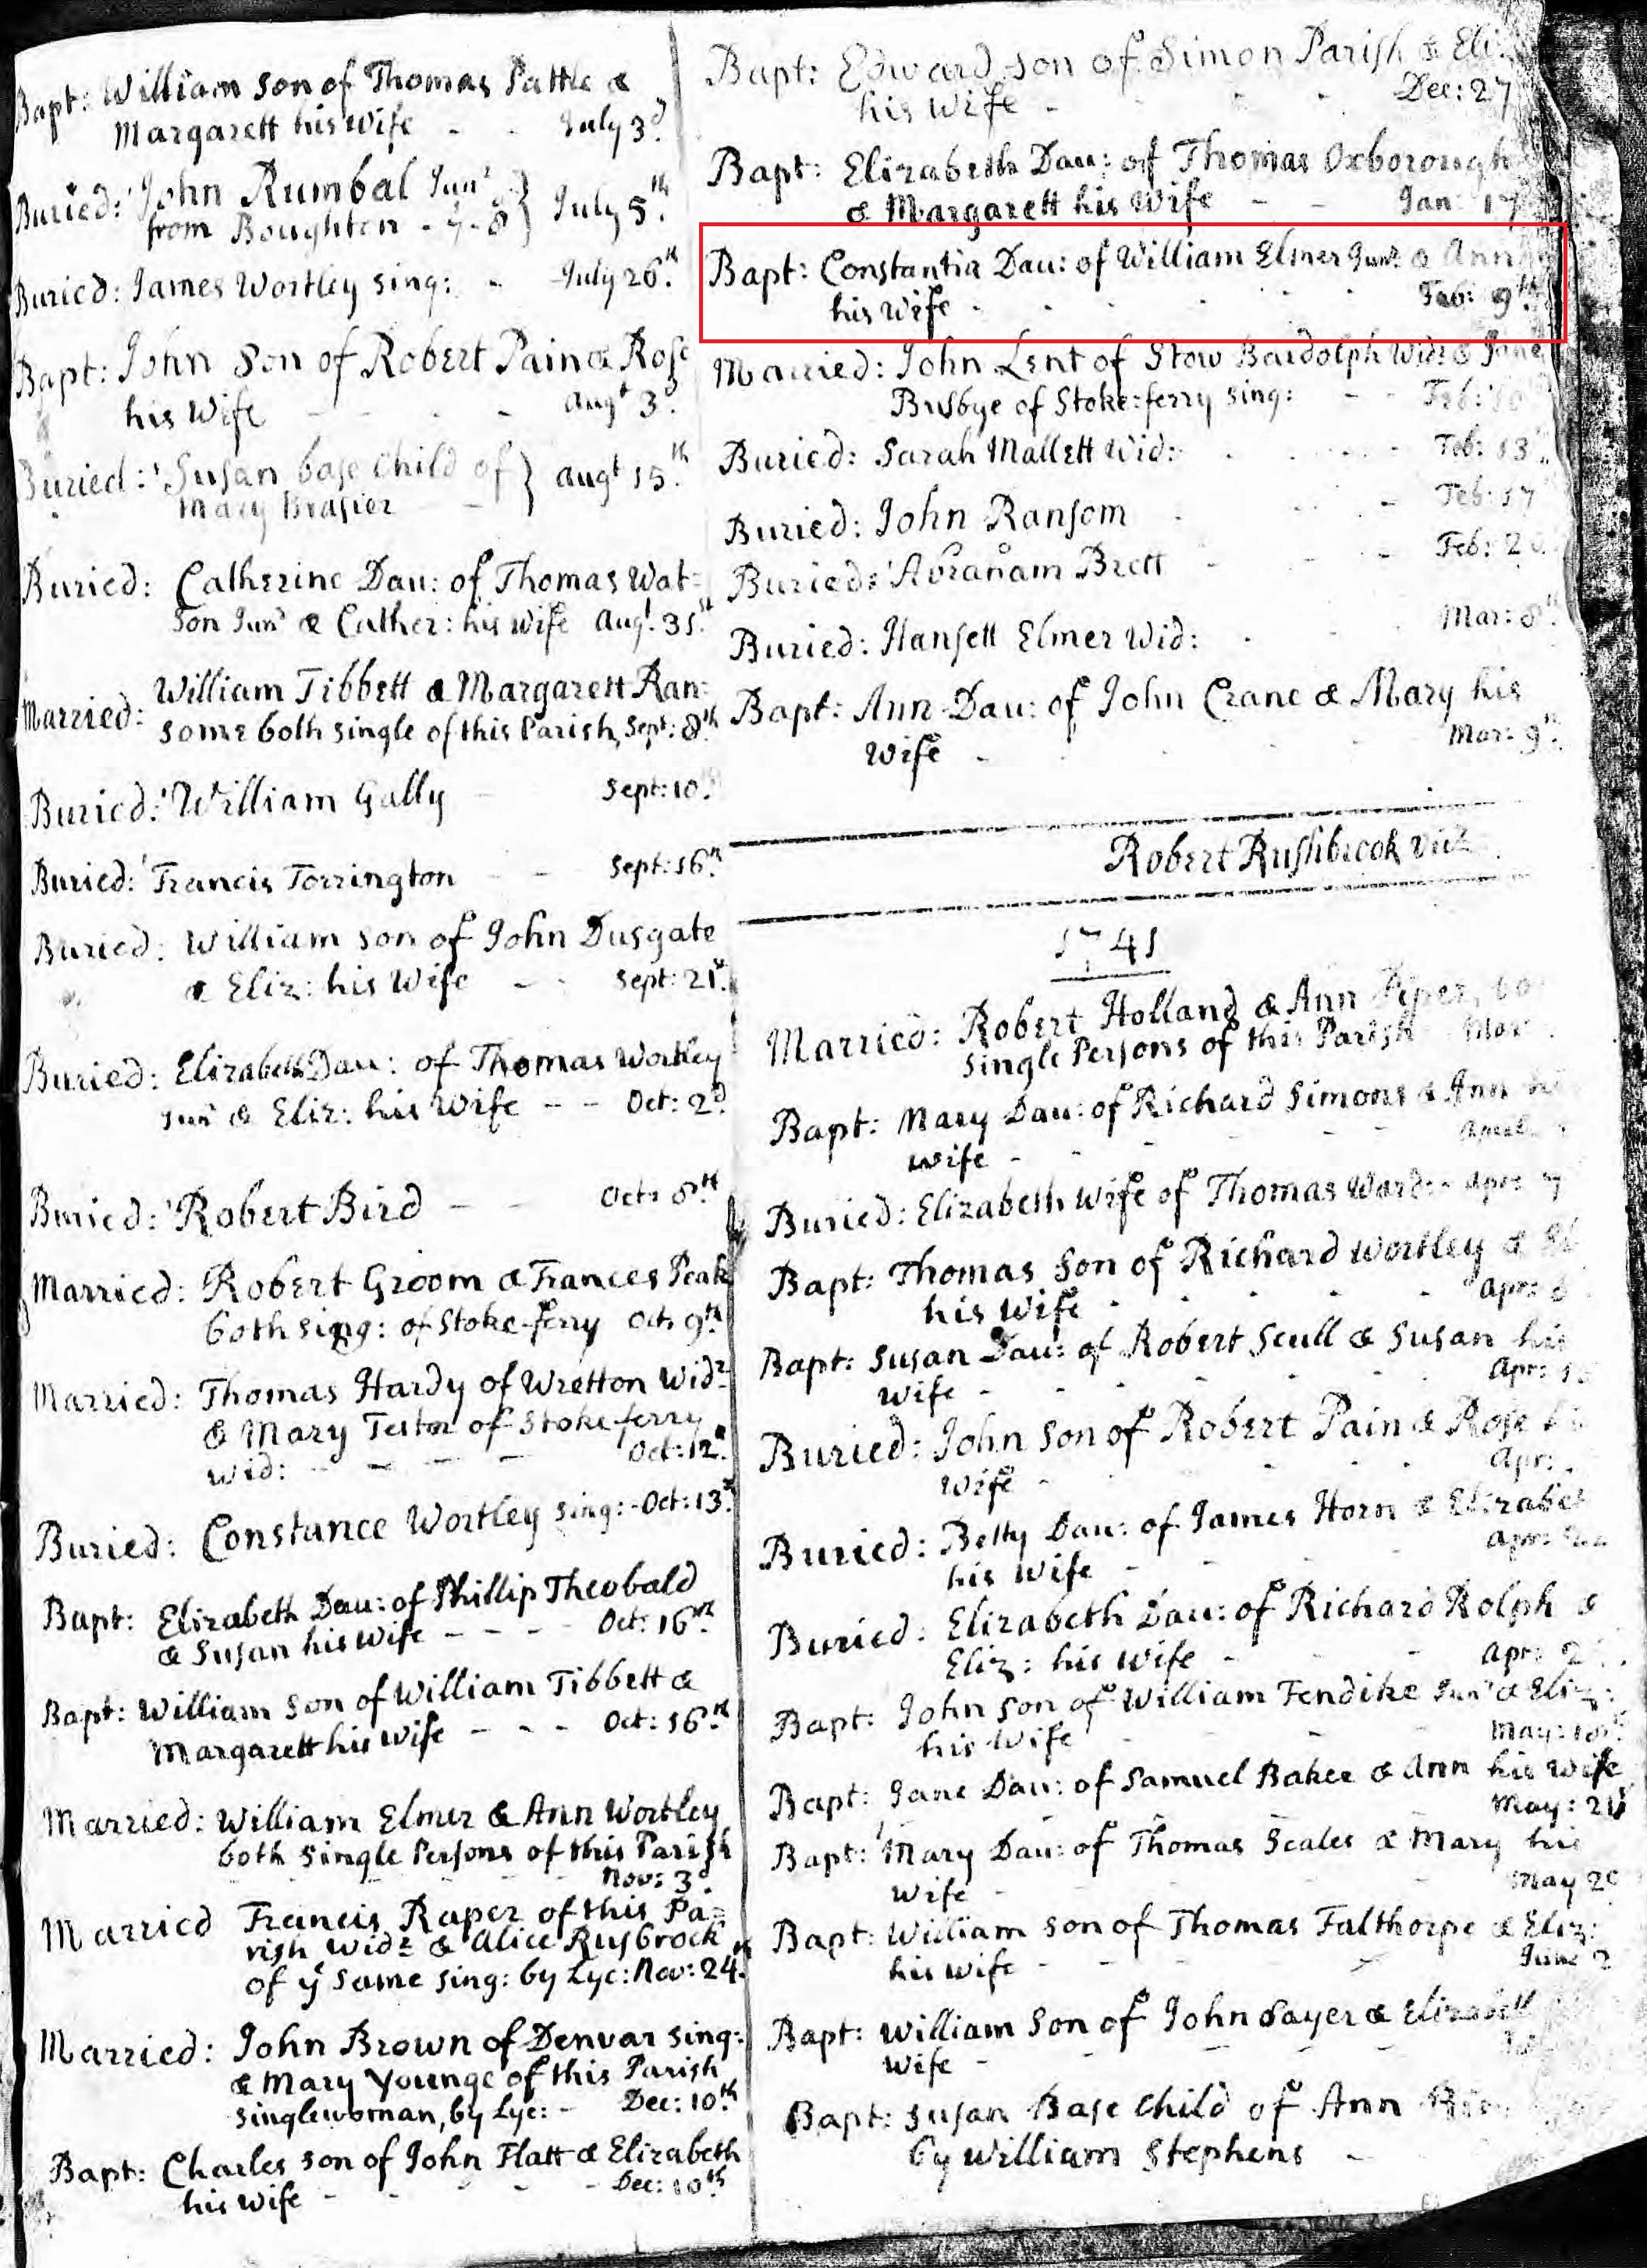 Bapt: William son of Thomas Pattle &
Margarett his wife - - July 3d.
Buried: John Rumbal Junr
from Boughton - 7-8 } July 5th.
Buried: James Wortley sing: - July 26.th
Bapt: John Son of Robert Pain & Rose
his Wife - - - - Augt 3d.
Buried: Susan base Child of
Mary Brasier - - } augt 15.th
Buried: Catherine Dau: of Thomas Wat=
son Junr & Cather: his wife Augt. 31.st
Married: William Tibbett & Margarett Ran=
some both single of this Parish, Sept: 8.th
Buried: William Gally - Sept: 10.
Buried: Francis Torrington - - Sept: 16th.
Buried: William son of John Dusgate
& Eliz: his Wife - - Sept: 21.st
Buried: Elizabeth Dau: of Thomas Wortley
Junr & Eliz: his Wife - - Oct: 2d.
Buried: Robert Bird - - Oct: 8.th
Married: Robert Groom & Frances Peak
both sing: of Stoke-ferry Oct: 9th.
Married: Thomas Hardy of Wretton Widr
& Mary of Stoke ferry
Wid: - - - - Oct: 12.
Buried: Constance Wortley sing: - Oct: 13.
Bapt: Elizabeth Dau: of Phillip Theobald
& Susan his wife - - - - Oct: 16th.
Bapt: William Son of William Tibbett &
Margarett his Wife - - - Oct: 16.th
Married: William Elmer & Ann Wortley
both single Persons of this Parish
Nov: 3d.
Married Francis Raper of this Pa=
rish Widr & Alice Rusbrock
of ye same sing: by Lyc: Nov: 24.
Married: John Brown of Denvar sing:
& Mary Younge of this Parish
singlewoman, by Lyc: - Dec: 10.th
Bapt: Charles son of John Flatt & Elizabeth
his wife - - - - - Dec: 10th.
Bapt: Edward son of Simon Parish & Eliz
his Wife - - - Dec: 27
Bapt: Elizabeth Dau: of Thomas Oxborough
& Margarett his Wife - - Jan: 17
Bapt: Constantia Dau: of William Elmer Junr & Ann
his Wife - - - - - Feb: 9th.
Married: John Lent of Stow Bardolph Widr & Jane
Busbye of Stoke:ferry sing: - - Feb: 10
Buried: Sarah Mallett Wid: - - - Feb: 13
Buried: John Ransom - - - Feb: 17
Buried: Abraham Brett - - - Feb: 2
Buried: Hansett Elmer Wid: - - Mar: 8th.
Bapt: Ann Dau: of John Crane & Mary his
Wife - - - - Mar: 9th.
Robert Rushbrook Vicr
1741
Married: Robert Holland & Ann Piper, bo
single Persons of this Parish Mar
Bapt: Mary Dau: of Richard Simons & Ann hi
wife - - - - April
Buried: Elizabeth Wife of Thomas Ward: - Apr: 7
Bapt: Thomas Son of Richard Wortley & El
his Wife - - - - - Apr:
Bapt: Susan Dau: of Robert Scull & Susan his
Wife - - - - - Apr: 1
Buried: John Son of Robert Pain & Rose hi
Wife - - - - Apr:
Buried: Betty Dau: of James Horn & Elizabet
his Wife - - - - Apr:
Buried: Elizabeth Dau: of Richard Rolph &
Eliz: his Wife - - Apr: 2
Bapt: John son of William Fendike Junr & Eliz:
his Wife - - - May: 10th.
Bapt: Jane Dau: of Samuel Baker & Ann his Wife
May: 21
Bapt: Mary Dau: of Thomas Scales & Mary his
Wife - - - - May 2
Bapt: William son of Thomas Falthorpe & Eliz:
his wife - - - - June 2
Bapt: William Son of John Sayer & Elizabeth
Wife - - - - -
Bapt: Susan Base Child of Ann
by William Stephens -